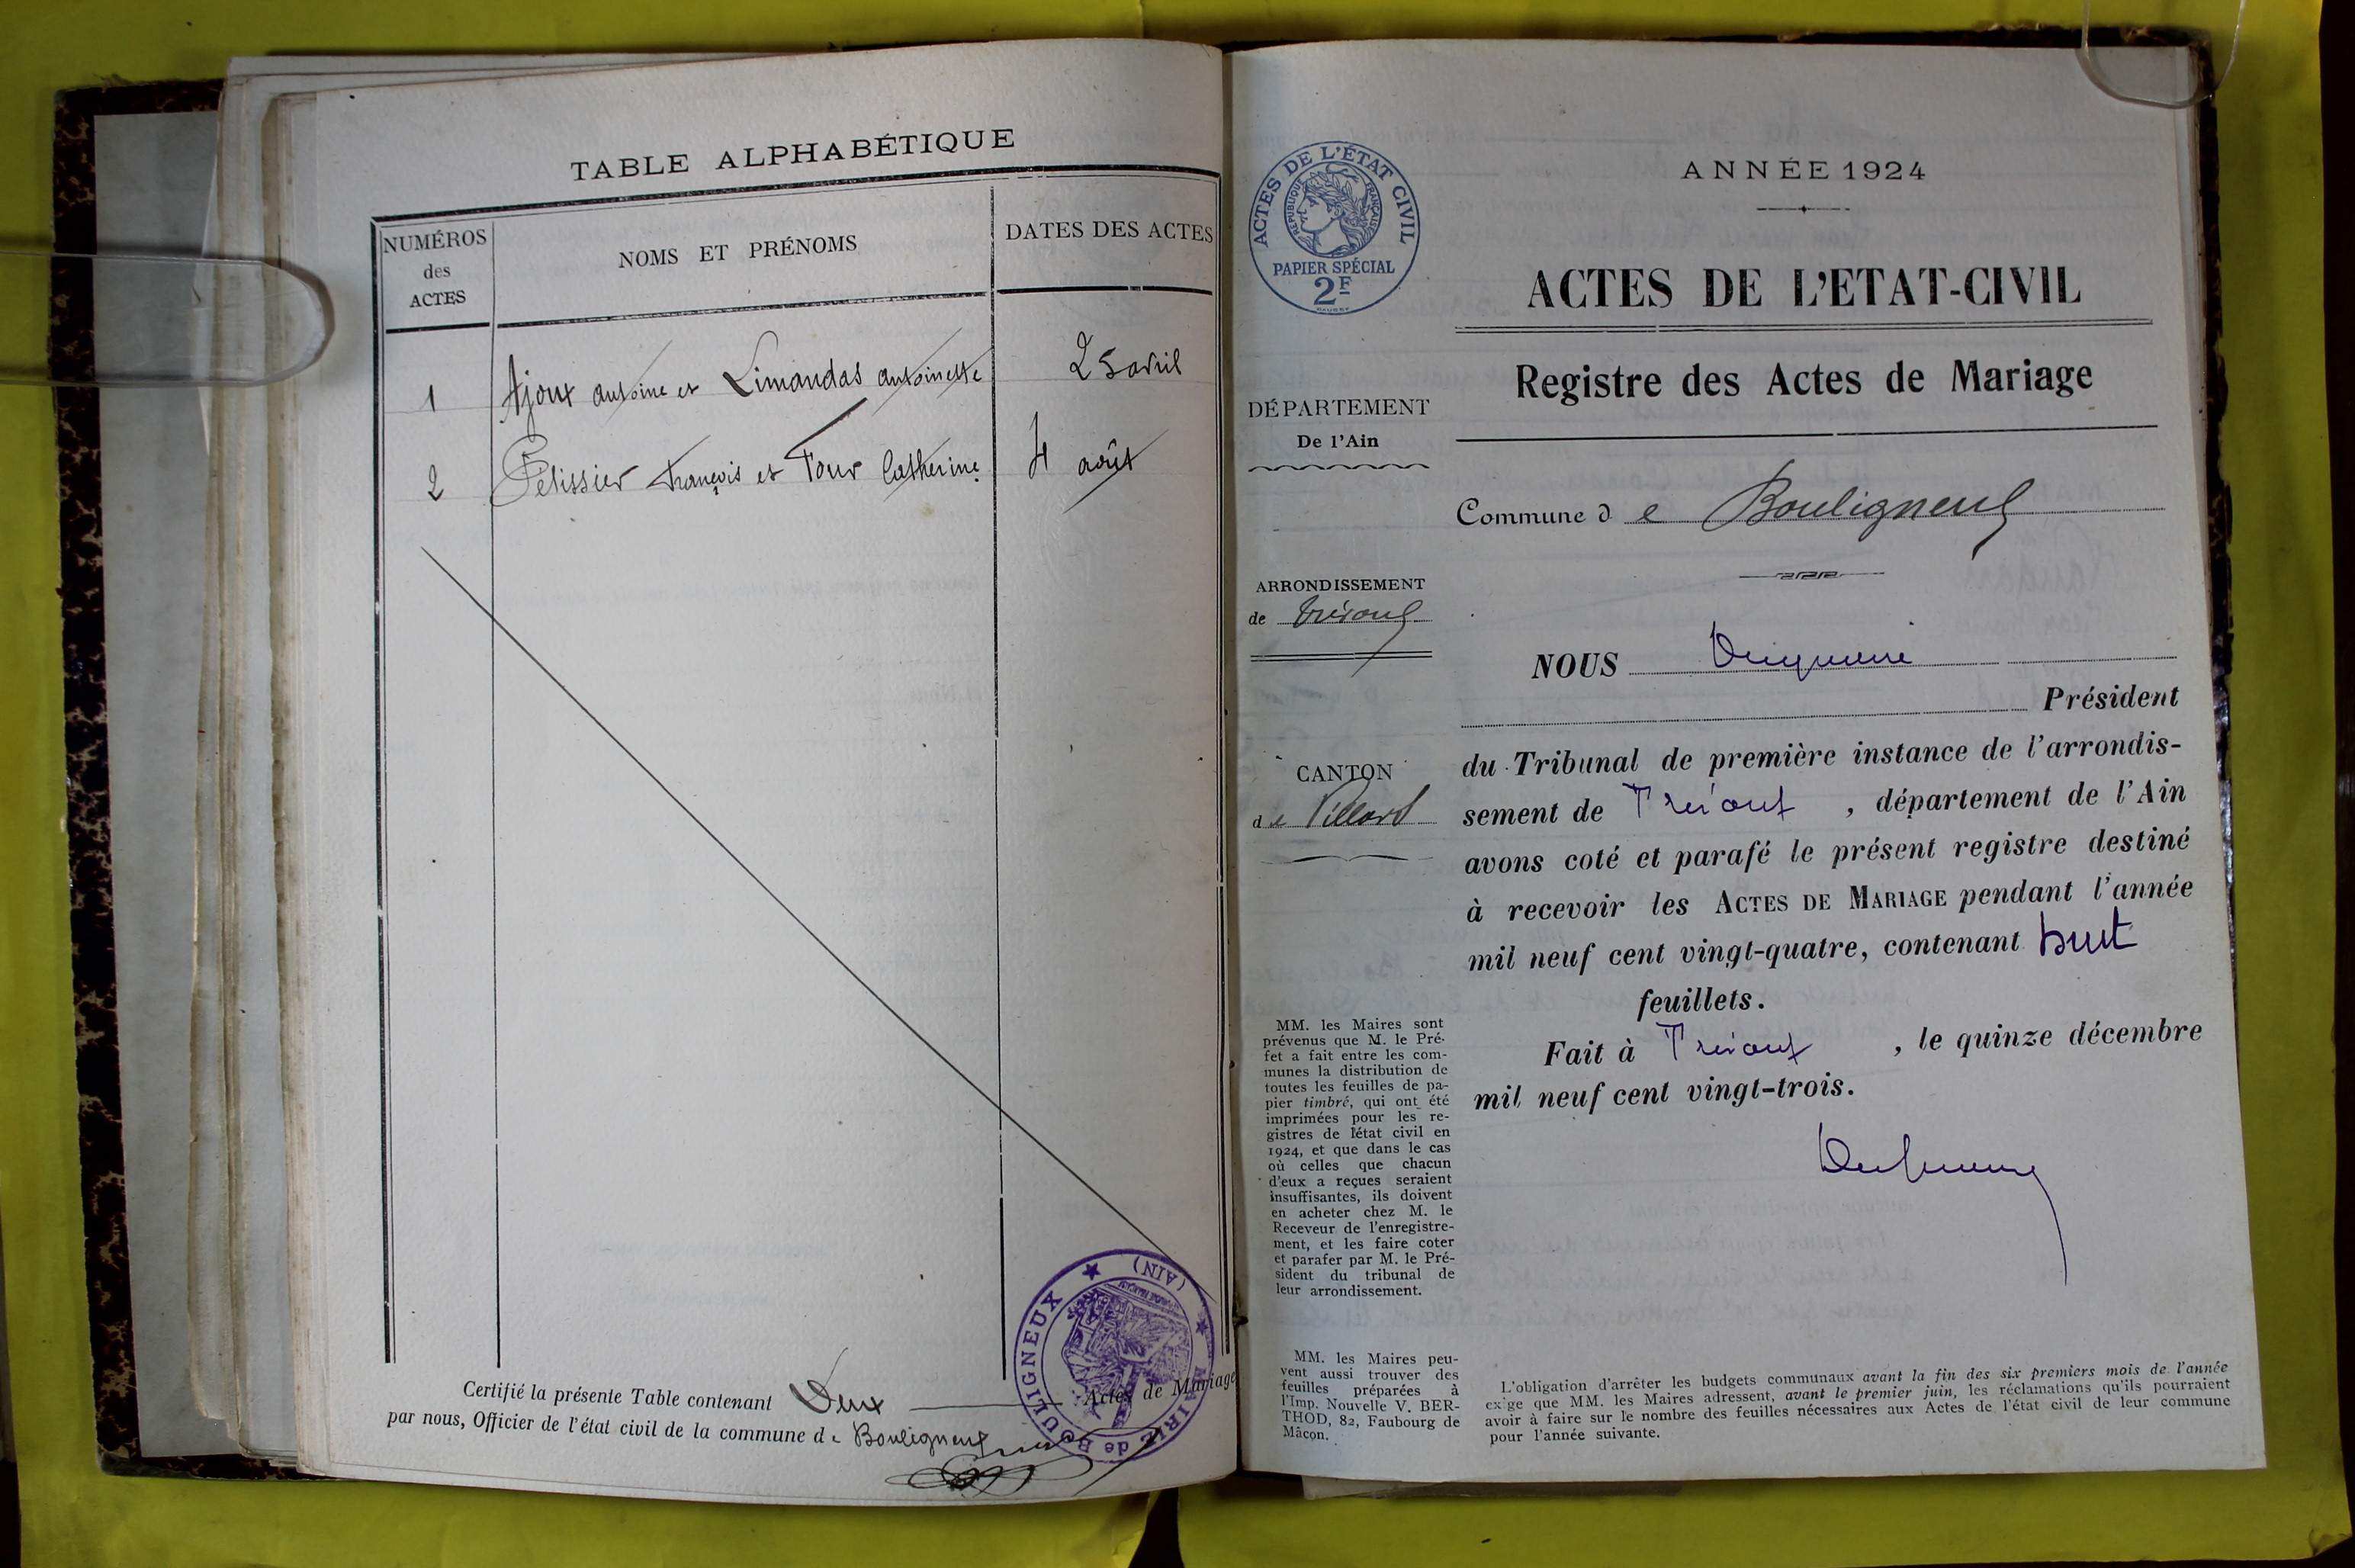 TABLE ALPHABÉTIQUE
NUMÉROS
des
ACTES
NOMS ET PRÉNOMS
DATES DES ACTES
1 Ajoux Antoine et Limandas Antoinette 25 avril
2 Pelissier François et Tour Catherine 4 août
Certifié la présente Table contenant Deux Actes de Mariage
par nous, Officier de l'état civil de la commune de Bouligneux
MAIRIE de BOULIGNEUX
(AIN)
ACTES DE L'ÉTAT CIVIL
RÉPUBLIQUE FRANÇAISE
PAPIER SPÉCIAL
2F
DÉPARTEMENT
De l'Ain
ARRONDISSEMENT
de Trévoux
CANTON
de Villars
MM. les Maires sont
prévenus que M. le Pré-
fet a fait entre les com-
munes la distribution de
toutes les feuilles de pa-
pier timbré, qui ont été
imprimées pour les re-
gistres de l'état civil en
1924, et que dans le cas
où celles que chacun
d'eux a reçues seraient
insuffisantes, ils doivent
en acheter chez M. le
Receveur de l'enregistre-
ment, et les faire coter
et parafer par M. le Pré-
sident du tribunal de
leur arrondissement.
MM. les Maires peu-
vent aussi trouver des
feuilles préparées à
l'Imp. Nouvelle V. BER-
THOD, 82, Faubourg de
Mâcon.
ANNÉE 1924
ACTES DE L'ETAT-CIVIL
Registre des Actes de Mariage
Commune de Bouligneux
NOUS
Président
du Tribunal de première instance de l'arrondis-
sement de Trévoux, département de l'Ain
avons coté et parafé le présent registre destiné
à recevoir les ACTES DE MARIAGE pendant l'année
mil neuf cent vingt-quatre, contenant huit
feuillets.
Fait à Trévoux, le quinze décembre
mil neuf cent vingt-trois.
L'obligation d'arrêter les budgets communaux avant la fin des six premiers mois de l'année
exige que MM. les Maires adressent, avant le premier juin, les réclamations qu'ils pourraient
avoir à faire sur le nombre des feuilles nécessaires aux Actes de l'état civil de leur commune
pour l'année suivante.